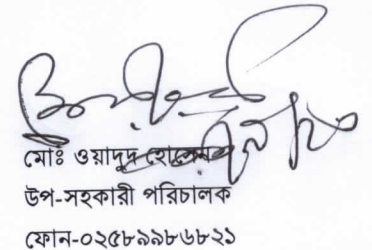 মোঃ ওয়াদুদ হোসেন
উপ-সহকারী পরিচালক
ফোন-০২৫৮৯৯৮৬৮২১